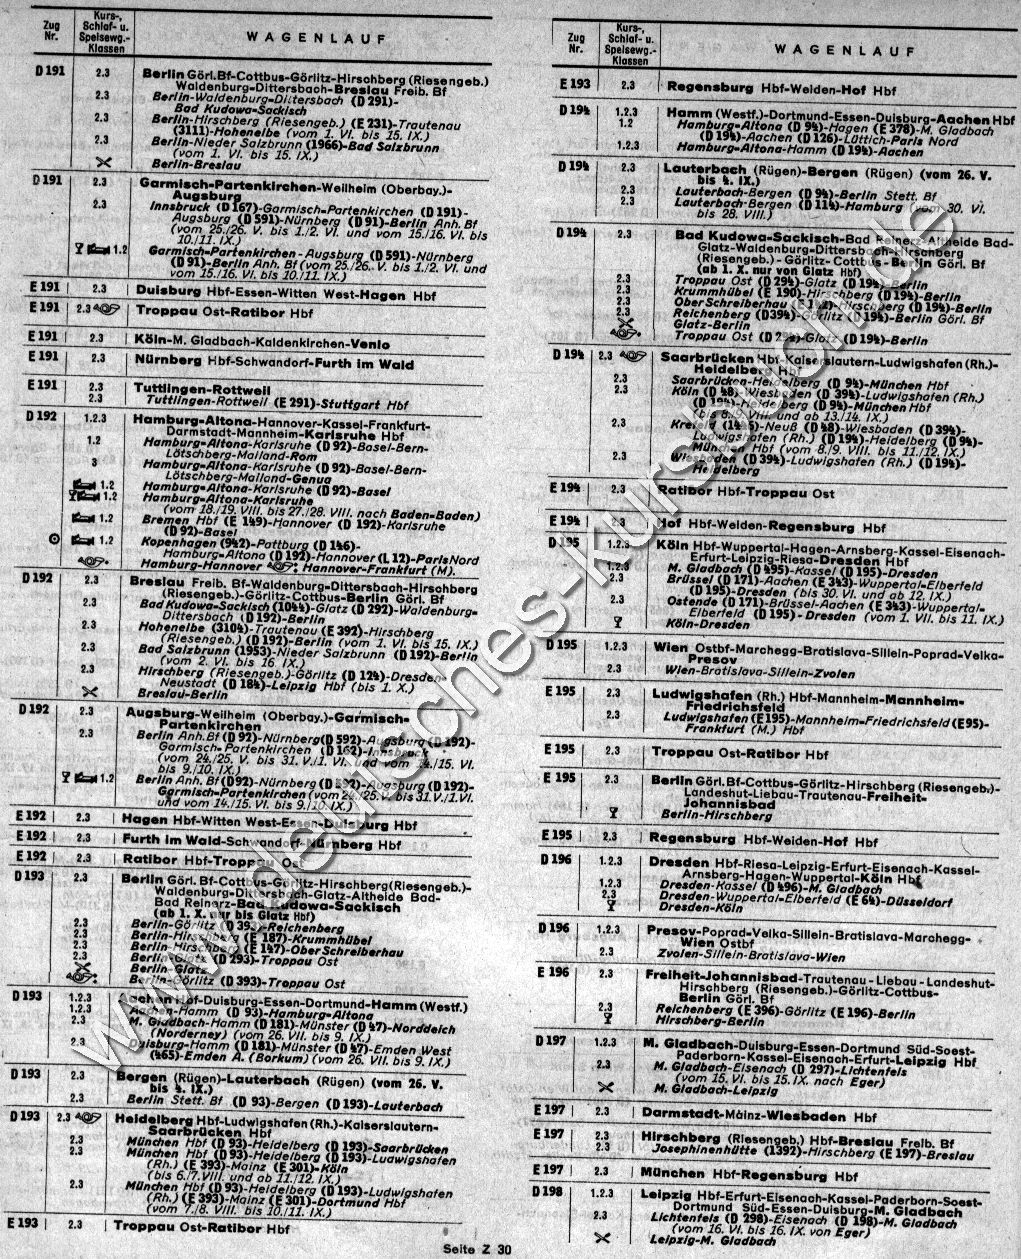 Zug Nr.
Kurs-, Schlaf- u. Speisewg.- Klassen
WAGENLAUF
D 191 2.3 Berlin Görl.Bf-Cottbus-Görlitz-Hirschberg (Riesengeb.)
Waldenburg-Dittersbach-Breslau Freib. Bf
2.3 Berlin-Waldenburg-Dittersbach (D 291)-
Bad Kudowa-Sackisch
2.3 Berlin-Hirschberg (Riesengeb.) (E 231)-Trautenau
(3111)-Hohenelbe (vom 1. VI. bis 15. IX.)
2.3 Berlin-Nieder Salzbrunn (1966)-Bad Salzbrunn
(vom 1. VI. bis 15. IX.)
Berlin-Breslau
D 191 2.3 Garmisch-Partenkirchen-Weilheim (Oberbay.)-
Augsburg
2.3 Innsbruck (D 167)-Garmisch-Partenkirchen (D 191)-
Augsburg (D 591)-Nürnberg (D 91)-Berlin Anh. Bf
(vom 25./26. V. bis 1./2. VI. und vom 15./16. VI. bis
10./11. IX.)
1.2 Garmisch-Partenkirchen-Augsburg (D 591)-Nürnberg
(D 91)-Berlin Anh. Bf (vom 25./26. V. bis 1./2. VI. und
vom 15./16. VI. bis 10./11. IX.)
E 191 2.3 Duisburg Hbf-Essen-Witten West-Hagen Hbf
E 191 2.3 Troppau Ost-Ratibor Hbf
E 191 2.3 Köln-M. Gladbach-Kaldenkirchen-Venlo
E 191 2.3 Nürnberg Hbf-Schwandorf-Furth im Wald
E 191 2.3 Tuttlingen-Rottweil
2.3 Tuttlingen-Rottweil (E 291)-Stuttgart Hbf
D 192 1.2.3 Hamburg-Altona-Hannover-Kassel-Frankfurt-
Darmstadt-Mannheim-Karlsruhe Hbf
1.2 Hamburg-Altona-Karlsruhe (D 92)-Basel-Bern-
Lötschberg-Mailand-Rom
3 Hamburg-Altona-Karlsruhe (D 92)-Basel-Bern-
Lötschberg-Mailand-Genua
1.2 Hamburg-Altona-Karlsruhe (D 92)-Basel
1.2 Hamburg-Altona-Karlsruhe
(vom 18./19. VIII. bis 27./28. VIII. nach Baden-Baden)
1.2 Bremen Hbf (E 149)-Hannover (D 192)-Karlsruhe
(D 92)-Basel
1.2 Kopenhagen (942)-Pattburg (D 146)-
Hamburg-Altona (D 192)-Hannover (L 12)-Paris Nord
Hamburg-Hannover Hannover-Frankfurt (M).
D 192 2.3 Breslau Freib. Bf-Waldenburg-Dittersbach-Hirschberg
(Riesengeb.)-Görlitz-Cottbus-Berlin Görl. Bf
2.3 Bad Kudowa-Sackisch (1044)-Glatz (D 292)-Waldenburg-
Dittersbach (D 192)-Berlin
2.3 Hohenelbe (3104)-Trautenau (E 392)-Hirschberg
(Riesengeb.) (D 192)-Berlin (vom 1. VI. bis 15. IX.)
2.3 Bad Salzbrunn (1953)-Nieder Salzbrunn (D 192)-Berlin
(vom 2. VI. bis 16. IX.)
2.3 Hirschberg (Riesengeb.)-Görlitz (D 124)-Dresden-
Neustadt (D 184)-Leipzig Hbf (bis 1. X.)
Breslau-Berlin
D 192 2.3 Augsburg-Weilheim (Oberbay.)-Garmisch-
Partenkirchen
2.3 Berlin Anh. Bf (D 92)-Nürnberg (D 592)-Augsburg (D 192)-
Garmisch-Partenkirchen (D 162)-Innsbruck
(vom 24./25. V. bis 31. V./1. VI. und vom 14./15. VI.
bis 9./10. IX.)
1.2 Berlin Anh. Bf (D 92)-Nürnberg (D 592)-Augsburg (D 192)-
Garmisch-Partenkirchen (vom 24./25. V. bis 31. V./1. VI.
und vom 14./15. VI. bis 9./10. IX.)
E 192 2.3 Hagen Hbf-Witten West-Essen-Duisburg Hbf
E 192 2.3 Furth im Wald-Schwandorf-Nürnberg Hbf
E 192 2.3 Ratibor Hbf-Troppau Ost
D 193 2.3 Berlin Görl. Bf-Cottbus-Görlitz-Hirschberg (Riesengeb.)-
Waldenburg-Dittersbach-Glatz-Altheide Bad-
Bad Reinerz-Bad Kudowa-Sackisch
(ab 1. X. nur bis Glatz Hbf)
2.3 Berlin-Görlitz (D 393)-Reichenberg
2.3 Berlin-Hirschberg (E 187)-Krummhübel
2.3 Berlin-Hirschberg (E 147)-Ober Schreiberhau
2.3 Berlin-Glatz (D 293)-Troppau Ost
Berlin-Glatz
Berlin-Görlitz (D 393)-Troppau Ost
D 193 1.2.3 Aachen Hbf-Duisburg-Essen-Dortmund-Hamm (Westf.)
1.2.3 Aachen-Hamm (D 93)-Hamburg-Altona
2.3 M. Gladbach-Hamm (D 181)-Münster (D 47)-Norddeich
(Norderney) (vom 26. VII. bis 9. IX.)
2.3 Duisburg-Hamm (D 181)-Münster (D 47)-Emden West
(465)-Emden A. (Borkum) (vom 26. VII. bis 9. IX.)
D 193 2.3 Bergen (Rügen)-Lauterbach (Rügen) (vom 26. V.
bis 4. IX.)
2.3 Berlin Stett. Bf (D 93)-Bergen (D 193)-Lauterbach
D 193 2.3 Heidelberg Hbf-Ludwigshafen (Rh.)-Kaiserslautern-
Saarbrücken Hbf
2.3 München Hbf (D 93)-Heidelberg (D 193)-Saarbrücken
2.3 München Hbf (D 93)-Heidelberg (D 193)-Ludwigshafen
(Rh.) (E 393)-Mainz (E 301)-Köln
(bis 6./7. VIII. und ab 11./12. IX.)
2.3 München Hbf (D 93)-Heidelberg (D 193)-Ludwigshafen
(Rh.) (E 393)-Mainz (E 301)-Dortmund Hbf
(vom 7./8. VIII. bis 10./11. IX.)
E 193 2.3 Troppau Ost-Ratibor Hbf
Zug Nr.
Kurs-, Schlaf- u. Speisewg.- Klassen
WAGENLAUF
E 193 2.3 Regensburg Hbf-Weiden-Hof Hbf
D 194 1.2.3 Hamm (Westf.)-Dortmund-Essen-Duisburg-Aachen Hbf
1.2 Hamburg-Altona (D 94)-Hagen (E 378)-M. Gladbach
(D 194)-Aachen (D 126)-Lüttich-Paris Nord
1.2.3 Hamburg-Altona-Hamm (D 194)-Aachen
D 194 2.3 Lauterbach (Rügen)-Bergen (Rügen) (vom 26. V.
bis 4. IX.)
2.3 Lauterbach-Bergen (D 94)-Berlin Stett. Bf
2.3 Lauterbach-Bergen (D 114)-Hamburg (vom 30. VI.
bis 28. VIII.)
D 194 2.3 Bad Kudowa-Sackisch-Bad Reinerz-Altheide Bad-
Glatz-Waldenburg-Dittersbach-Hirschberg
(Riesengeb.)-Görlitz-Cottbus-Berlin Görl. Bf
(ab 1. X. nur von Glatz Hbf)
2.3 Troppau Ost (D 294)-Glatz (D 194)-Berlin
2.3 Krummhübel (E 190)-Hirschberg (D 194)-Berlin
2.3 Ober Schreiberhau Hirschberg (D 194)-Berlin
2.3 Reichenberg (D394)-Görlitz (D 194)-Berlin Görl. Bf
Glatz-Berlin
Troppau Ost (D 294)-Glatz (D 194)-Berlin
D 194 2.3 Saarbrücken Hbf-Kaiserslautern-Ludwigshafen (Rh.)-
Heidelberg Hbf
2.3 Saarbrücken-Heidelberg (D 94)-München Hbf
2.3 Köln (D 48)-Wiesbaden (D 394)-Ludwigshafen (Rh.)
(D 194)-Heidelberg (D 94)-München Hbf
8./9. VIII. und ab 13./14. IX.)
2.3 Neuß (D 48)-Wiesbaden (D 394)-
Ludwigshafen (Rh.) (D 194)-Heidelberg (D 94)-
München Hbf (vom 8./9. VIII. bis 11./12. IX.)
2.3 Wiesbaden (D 394)-Ludwigshafen (Rh.) (D 194)-
Heidelberg
E 194 2.3 Ratibor Hbf-Troppau Ost
E 194 2.3 Hof Hbf-Weiden-Regensburg Hbf
D 195 1.2.3 Köln Hbf-Wuppertal-Hagen-Arnsberg-Kassel-Eisenach-
Erfurt-Leipzig-Riesa-Dresden Hbf
1.2.3 M. Gladbach (D 495)-Kassel (D 195)-Dresden
2.3 Brüssel (D 171)-Aachen (E 343)-Wuppertal-Elberfeld
(D 195)-Dresden (bis 30. VI. und ab 12. IX.)
2.3 Ostende (D 171)-Brüssel-Aachen (E 343)-Wuppertal-
Elberfeld (D 195)-Dresden (vom 1. VII. bis 11. IX.)
Köln-Dresden
D 195 1.2.3 Wien Ostbf-Marchegg-Bratislava-Sillein-Poprad-Velka-
Presov
2.3 Wien-Bratislava-Sillein-Zvolen
E 195 2.3 Ludwigshafen (Rh.) Hbf-Mannheim-Mannheim-
Friedrichsfeld
2.3 Ludwigshafen (E195)-Mannheim-Friedrichsfeld (E95)-
Frankfurt (M.) Hbf
E 195 2.3 Troppau Ost-Ratibor Hbf
E 195 2.3 Berlin Görl. Bf-Cottbus-Görlitz-Hirschberg (Riesengeb.)-
Landeshut-Liebau-Trautenau-Freiheit-
Johannisbad
Berlin-Hirschberg
E 195 2.3 Regensburg Hbf-Weiden-Hof Hbf
D 196 1.2.3 Dresden Hbf-Riesa-Leipzig-Erfurt-Eisenach-Kassel-
Arnsberg-Hagen-Wuppertal-Köln Hbf
1.2.3 Dresden-Kassel (D 496)-M. Gladbach
2.3 Dresden-Wuppertal-Elberfeld (E 64)-Düsseldorf
Dresden-Köln
D 196 1.2.3 Presov-Poprad-Velka-Sillein-Bratislava-Marchegg-
Wien Ostbf
2.3 Zvolen-Sillein-Bratislava-Wien
E 196 2.3 Freiheit-Johannisbad-Trautenau-Liebau-Landeshut-
Hirschberg (Riesengeb.)-Görlitz-Cottbus-
Berlin Görl. Bf
2.3 Reichenberg (E 396)-Görlitz (E 196)-Berlin
Hirschberg-Berlin
D 197 1.2.3 M. Gladbach-Duisburg-Essen-Dortmund Süd-Soest-
Paderborn-Kassel-Eisenach-Erfurt-Leipzig Hbf
2.3 M. Gladbach-Eisenach (D 297)-Lichtenfels
(vom 15. VI. bis 15. IX. nach Eger)
M. Gladbach-Leipzig
E 197 2.3 Darmstadt-Mainz-Wiesbaden Hbf
E 197 2.3 Hirschberg (Riesengeb.) Hbf-Breslau Freib. Bf
2.3 Josephinenhütte (1392)-Hirschberg (E 197)-Breslau
E 197 2.3 München Hbf-Regensburg Hbf
D 198 1.2.3 Leipzig Hbf-Erfurt-Eisenach-Kassel-Paderborn-Soest-
Dortmund Süd-Essen-Duisburg-M. Gladbach
2.3 Lichtenfels (D 298)-Eisenach (D 198)-M. Gladbach
(vom 16. VI. bis 16. IX. von Eger)
Leipzig-M. Gladbach
Seite Z 30
www.deutsches-kursbuch.de